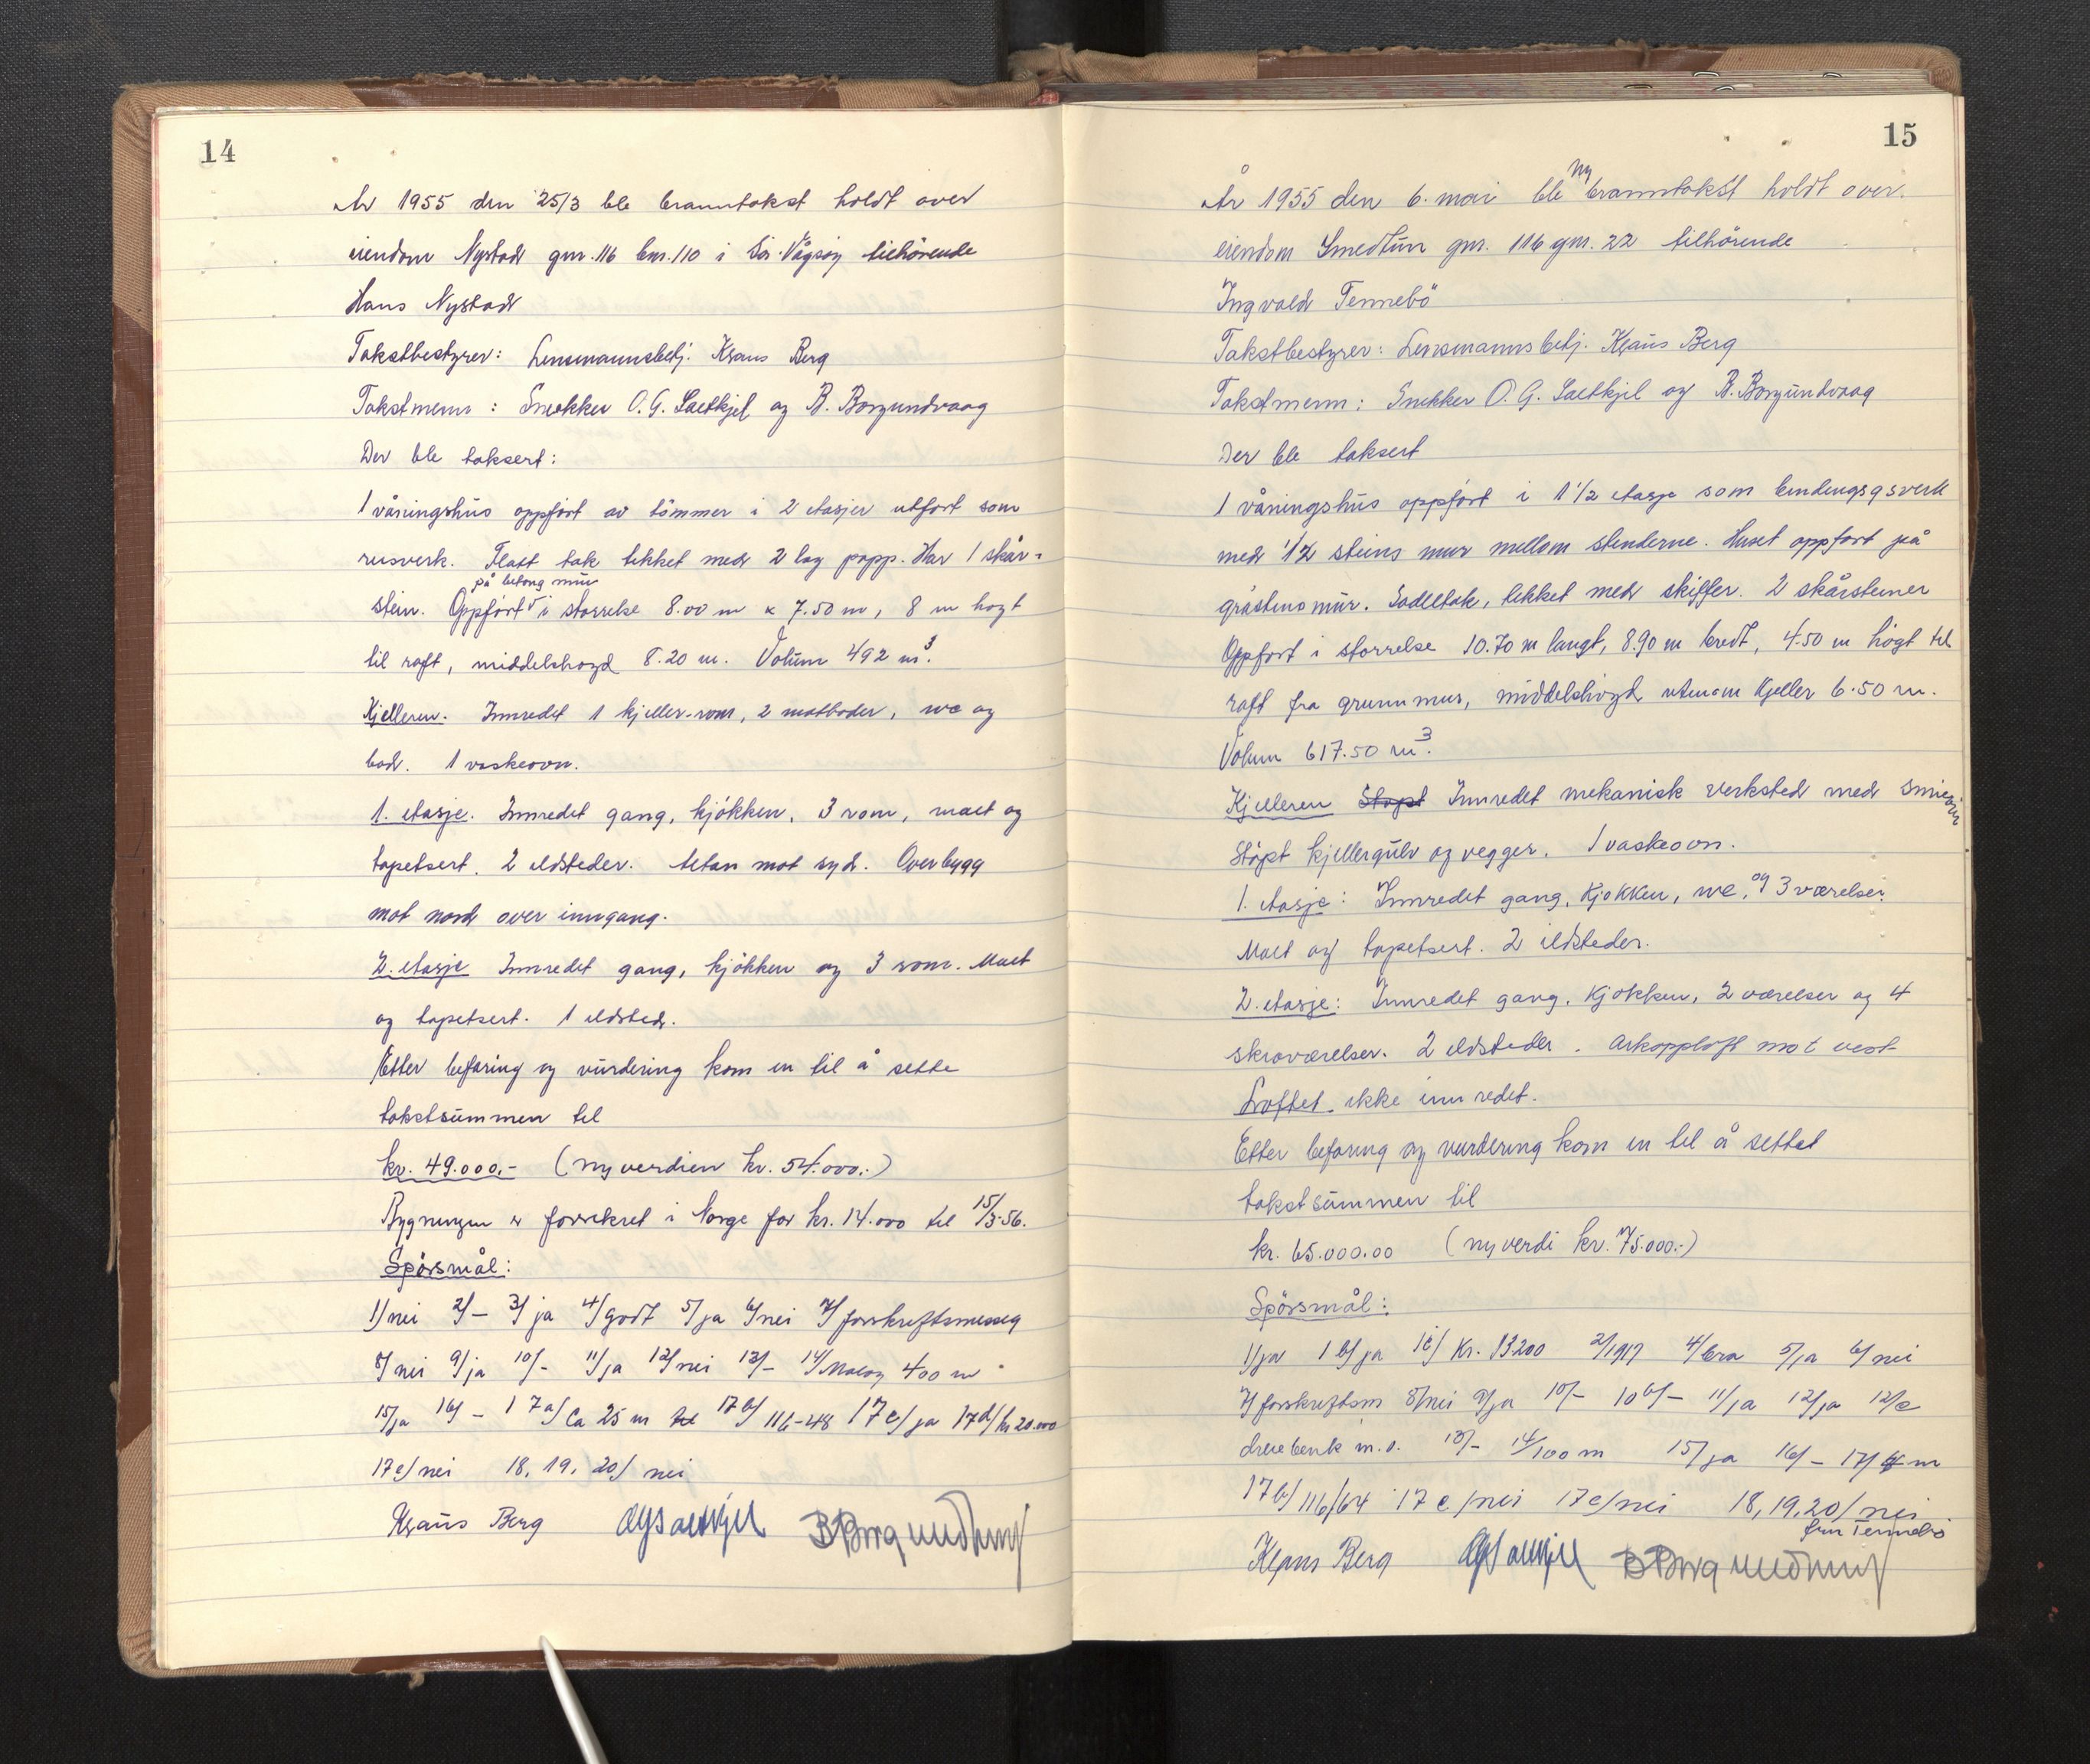 14
År 1955 den 25/3 ble branntakst holdt over
eiendom Nystad gnr. 116 bnr. 110 i Sör-Vågsöy tilhörende
Hans Nystad
Takstbestyrer: Lensmannsbetj. Klaus Berg
Takstmenn: Snekker O. G. Saltkjel og B. Borgundvaag
Der ble taksert:
1 våningshus oppfört av tömmer i 2 etasjer utfört som
reisverk. Flatt tak tekket med 2 lag papp. Har 1 skår-
på betong mur
stein. Oppfört i störrelse 8.00 m x 7.50 m, 8 m hogt
til raft, middelshogd 8.20 m. Volum 492 m³.
Kjelleren. Innredet 1 kjeller-rom, 2 matboder, wc og
bad. 1 vaskeovn.
1. etasje. Innredet gang, kjökken, 3 rom, malt og
tapetsert. 2 ildsteder. Altan mot syd. Overbygg
mot nord over inngang.
2. etasje Innredet gang, kjökken og 3 rom. Malt
og tapetsert. 1 ildsted.
Etter befaring og vurdering kom en til å sette
takstsummen til
kr. 49.000,- (nyverdien kr. 54.000.-)
Bygningen er forsikret i Norge for kr. 14.000 til 15/3-56.
Spörsmål:
1/nei 2/- 3/ja 4/godt 5/ja 6/nei 7/forskriftsmesseg
8/nei 9/ja 10/- 11/ja 12/nei 13/- 14/Måløy 400 m
15/ja 16/- 17a/ca 25 m 17b/116-48 17c/ja 17d/kr 20.000
17e/nei 18, 19, 20/ nei
Klaus Berg OGSaltkjel BBorgundvaag
15
År 1955 den 6. mai ble ny branntakst holdt over.
eiendom Smedtun gnr. 116 gnr. 22 tilhörende
Ingvald Tennebö
Takstbestyrer: Lensmannsbetj. Klaus Berg
Takstmenn: Snekker O. G. Saltkjel og B. Borgundvaag
Der ble taksert
1 våningshus oppfört i 1 1/2 etasje som bindingsqsverk
med 1/2 steins mur mellom stenderne. Huset oppfört på
gråstensmur. Sadeltak, tekket med skiffer. 2 skårsteiner
Oppfört i störrelse 10.70 m langt, 8.90 m bredt, 4.50 m högt til
raft fra grunnmur, middelshögd utenom kjeller 6.50 m.
Volum 617.50 m³.
Kjelleren Stöpt Innredet mekanisk verksted med smie
Stöpt kjellergulv og vegger. 1 vaskeovn.
1. etasje: Innredet gang, kjökken, wc, og 3 værelser.
Malt og tapetsert. 2 ildsteder.
2. etasje: Innredet gang, kjökken, 2 værelser og 4
skraværelser. 2 ildsteder. Arkopploft mot vest
Loftet. ikke innredet.
Etter befaring og vurdering kom en til å settet
takstsummen til
kr. 65.000.00 (nyverdi kr. 75.000.-)
Spörsmål:
1/ja 1b/ja 1c/ Kr. 13200 2/1917 4/bra 5/ja 6/nei
7/forskriftsm 8/nei 9/ja 10/- 10b/- 11/ja 12/ja 12/c
dreiebenk m.v. 13/- 14/100 m 15/ja 16/- 17/4 m
17b/116/64 17c/nei 17e/nei 18, 19, 20/nei
Tennebö
Klaus Berg OGSaltkjel BBorgundvaag